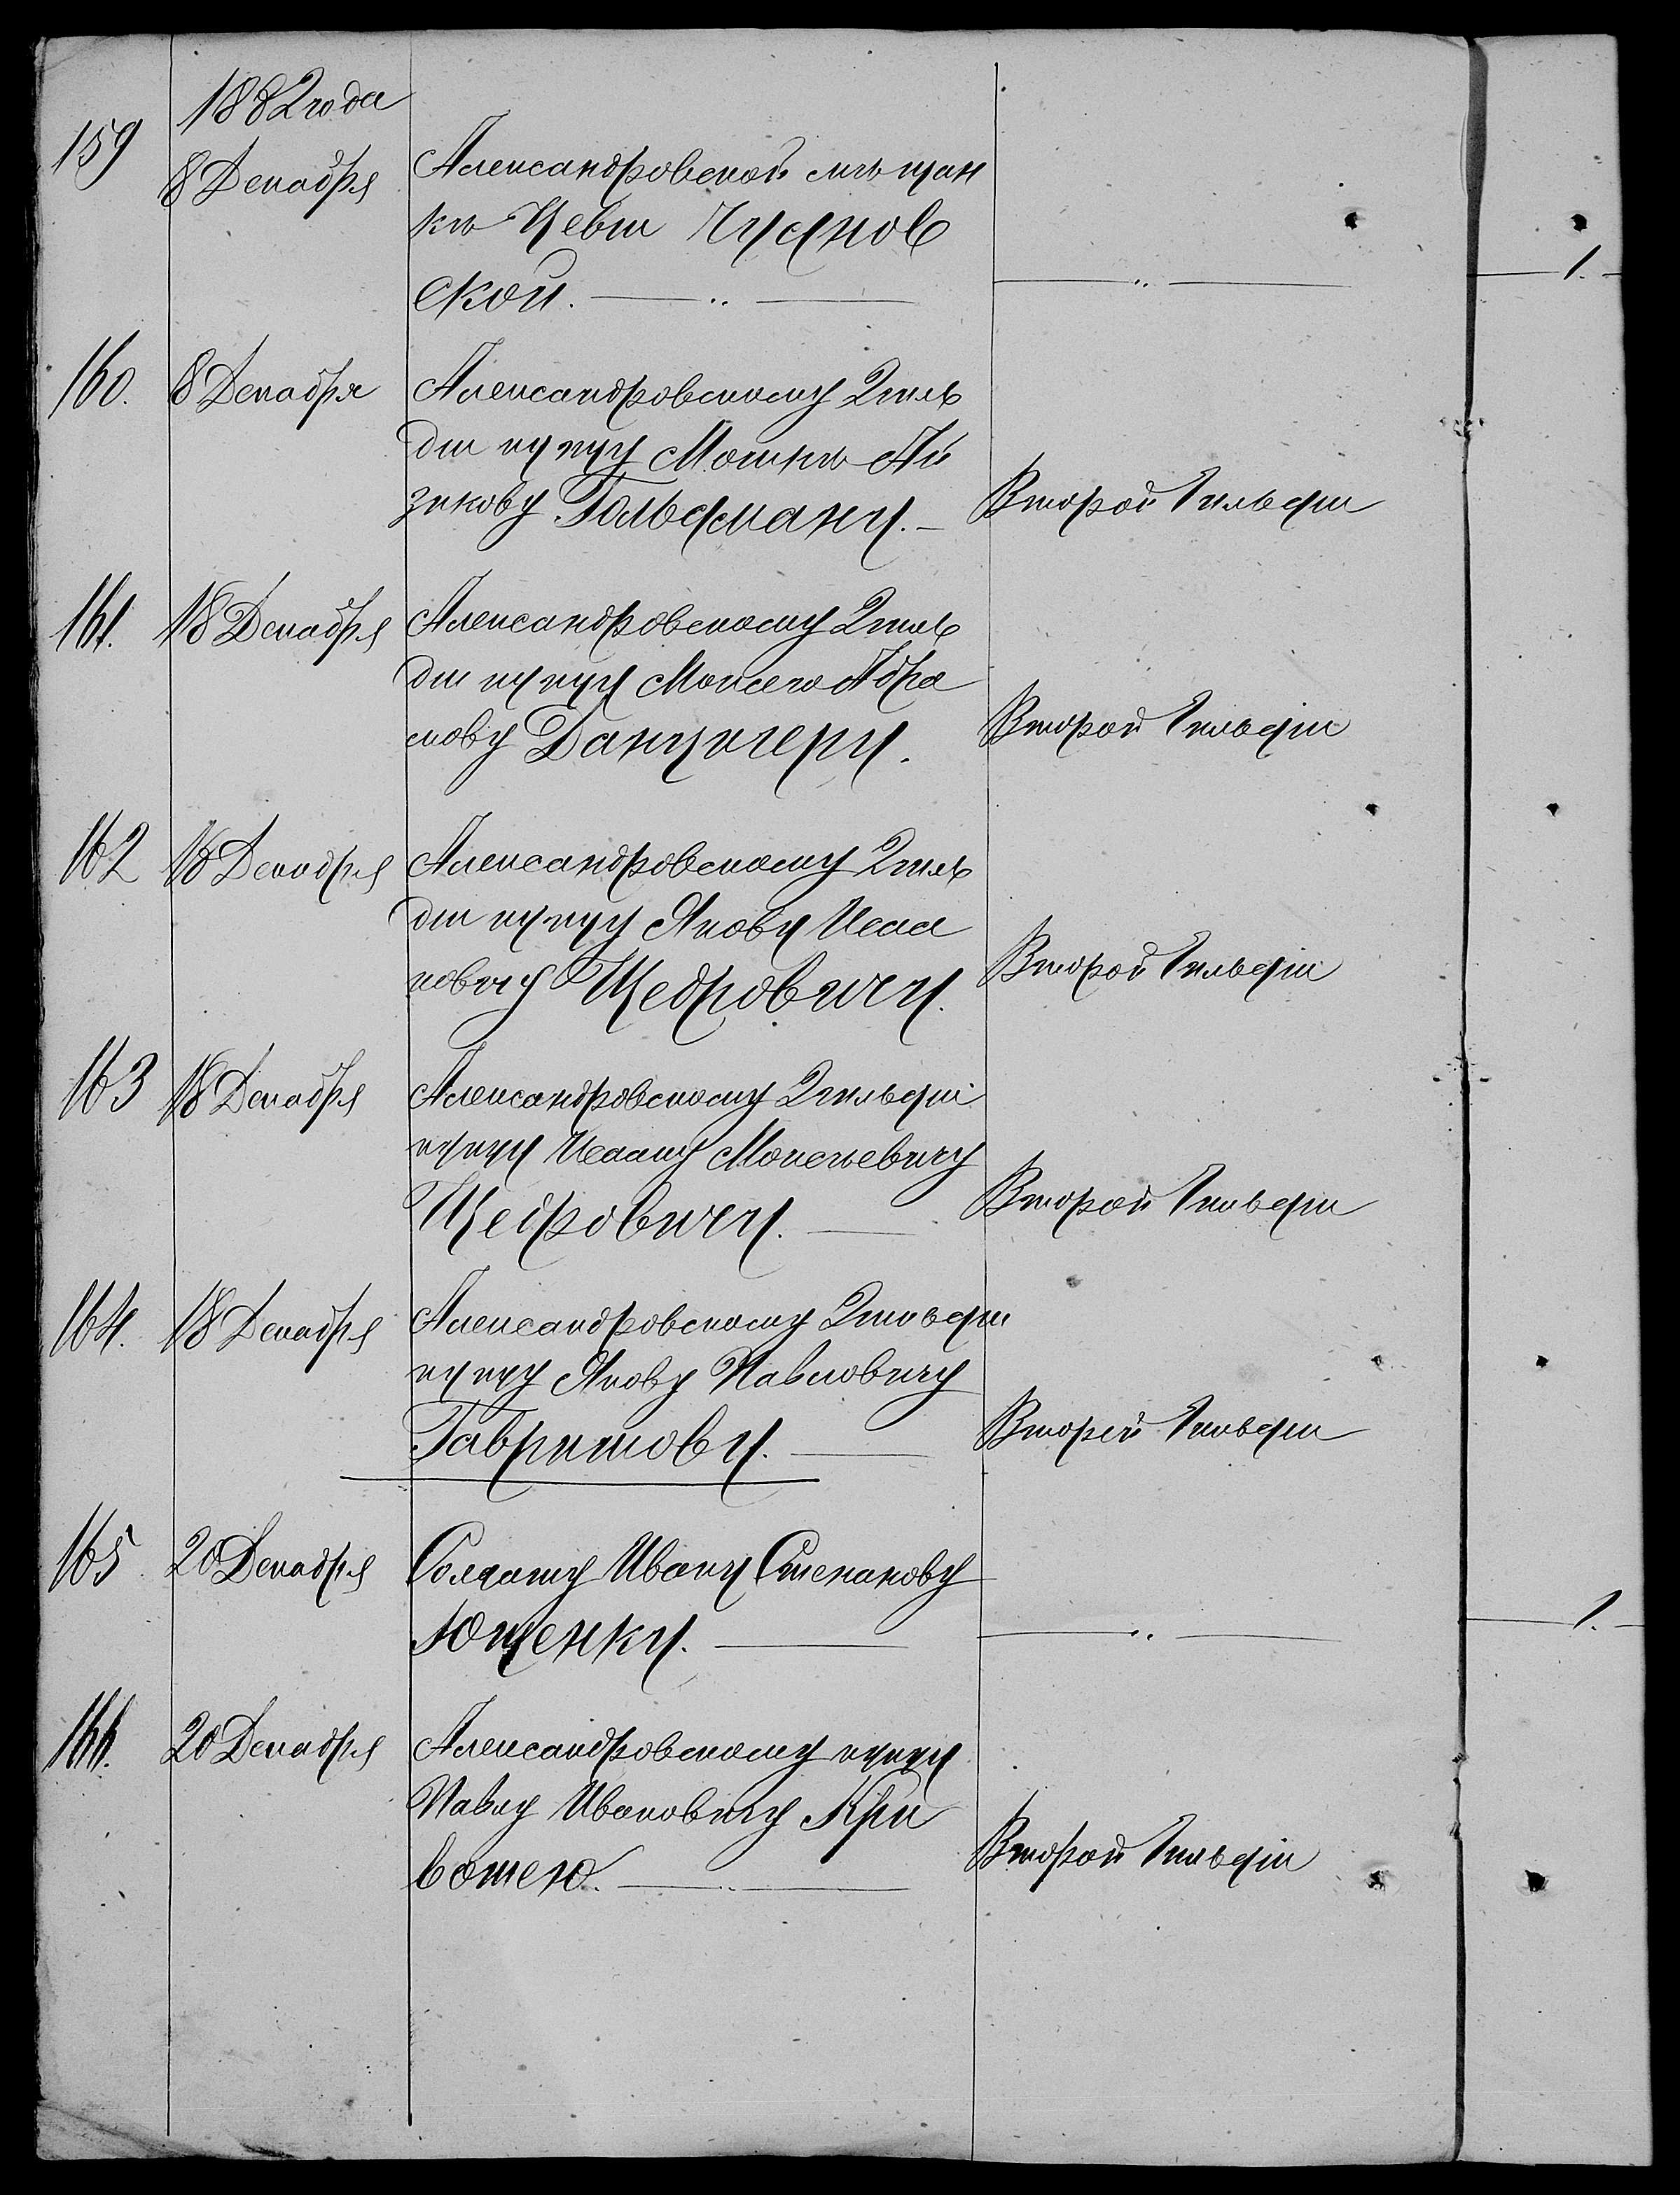 1882 года
159 8 Декабря Александровской мѣщан
кѣ Цевли Чуднов
ской. — „ — — „ — 1. —
160. 8 Декабря Александровскому 2 гиль
діи купцу Мошкѣ Ай
зикову Гольдману. — Второй Гильдіи
161. 18 Декабря Александровскому 2 гиль
діи купцу Моисею Абра
мову Данцигеру. Второй Гильдіи
162 18 Декабря Александровскому 2 гиль
діи купцу Якову Исаа
ковичу Щедровичу. Второй Гильдіи
163 18 Декабря Александровскому 2 гильдіи
купцу Исааку Моисеевичу
Щедровичу. — Второй Гильдіи
164. 18 Декабря Александровскому 2 гильдіи
купцу Якову Павловичу
Гаврилову. — Второй Гильдіи
165 20 Декабря Солдату Ивану Степанову
Ющенку. — — „ — 1. —
166. 20 Декабря Александровскому купцу
Павлу Ивановичу Кри
вошею. — „ — Второй Гильдіи